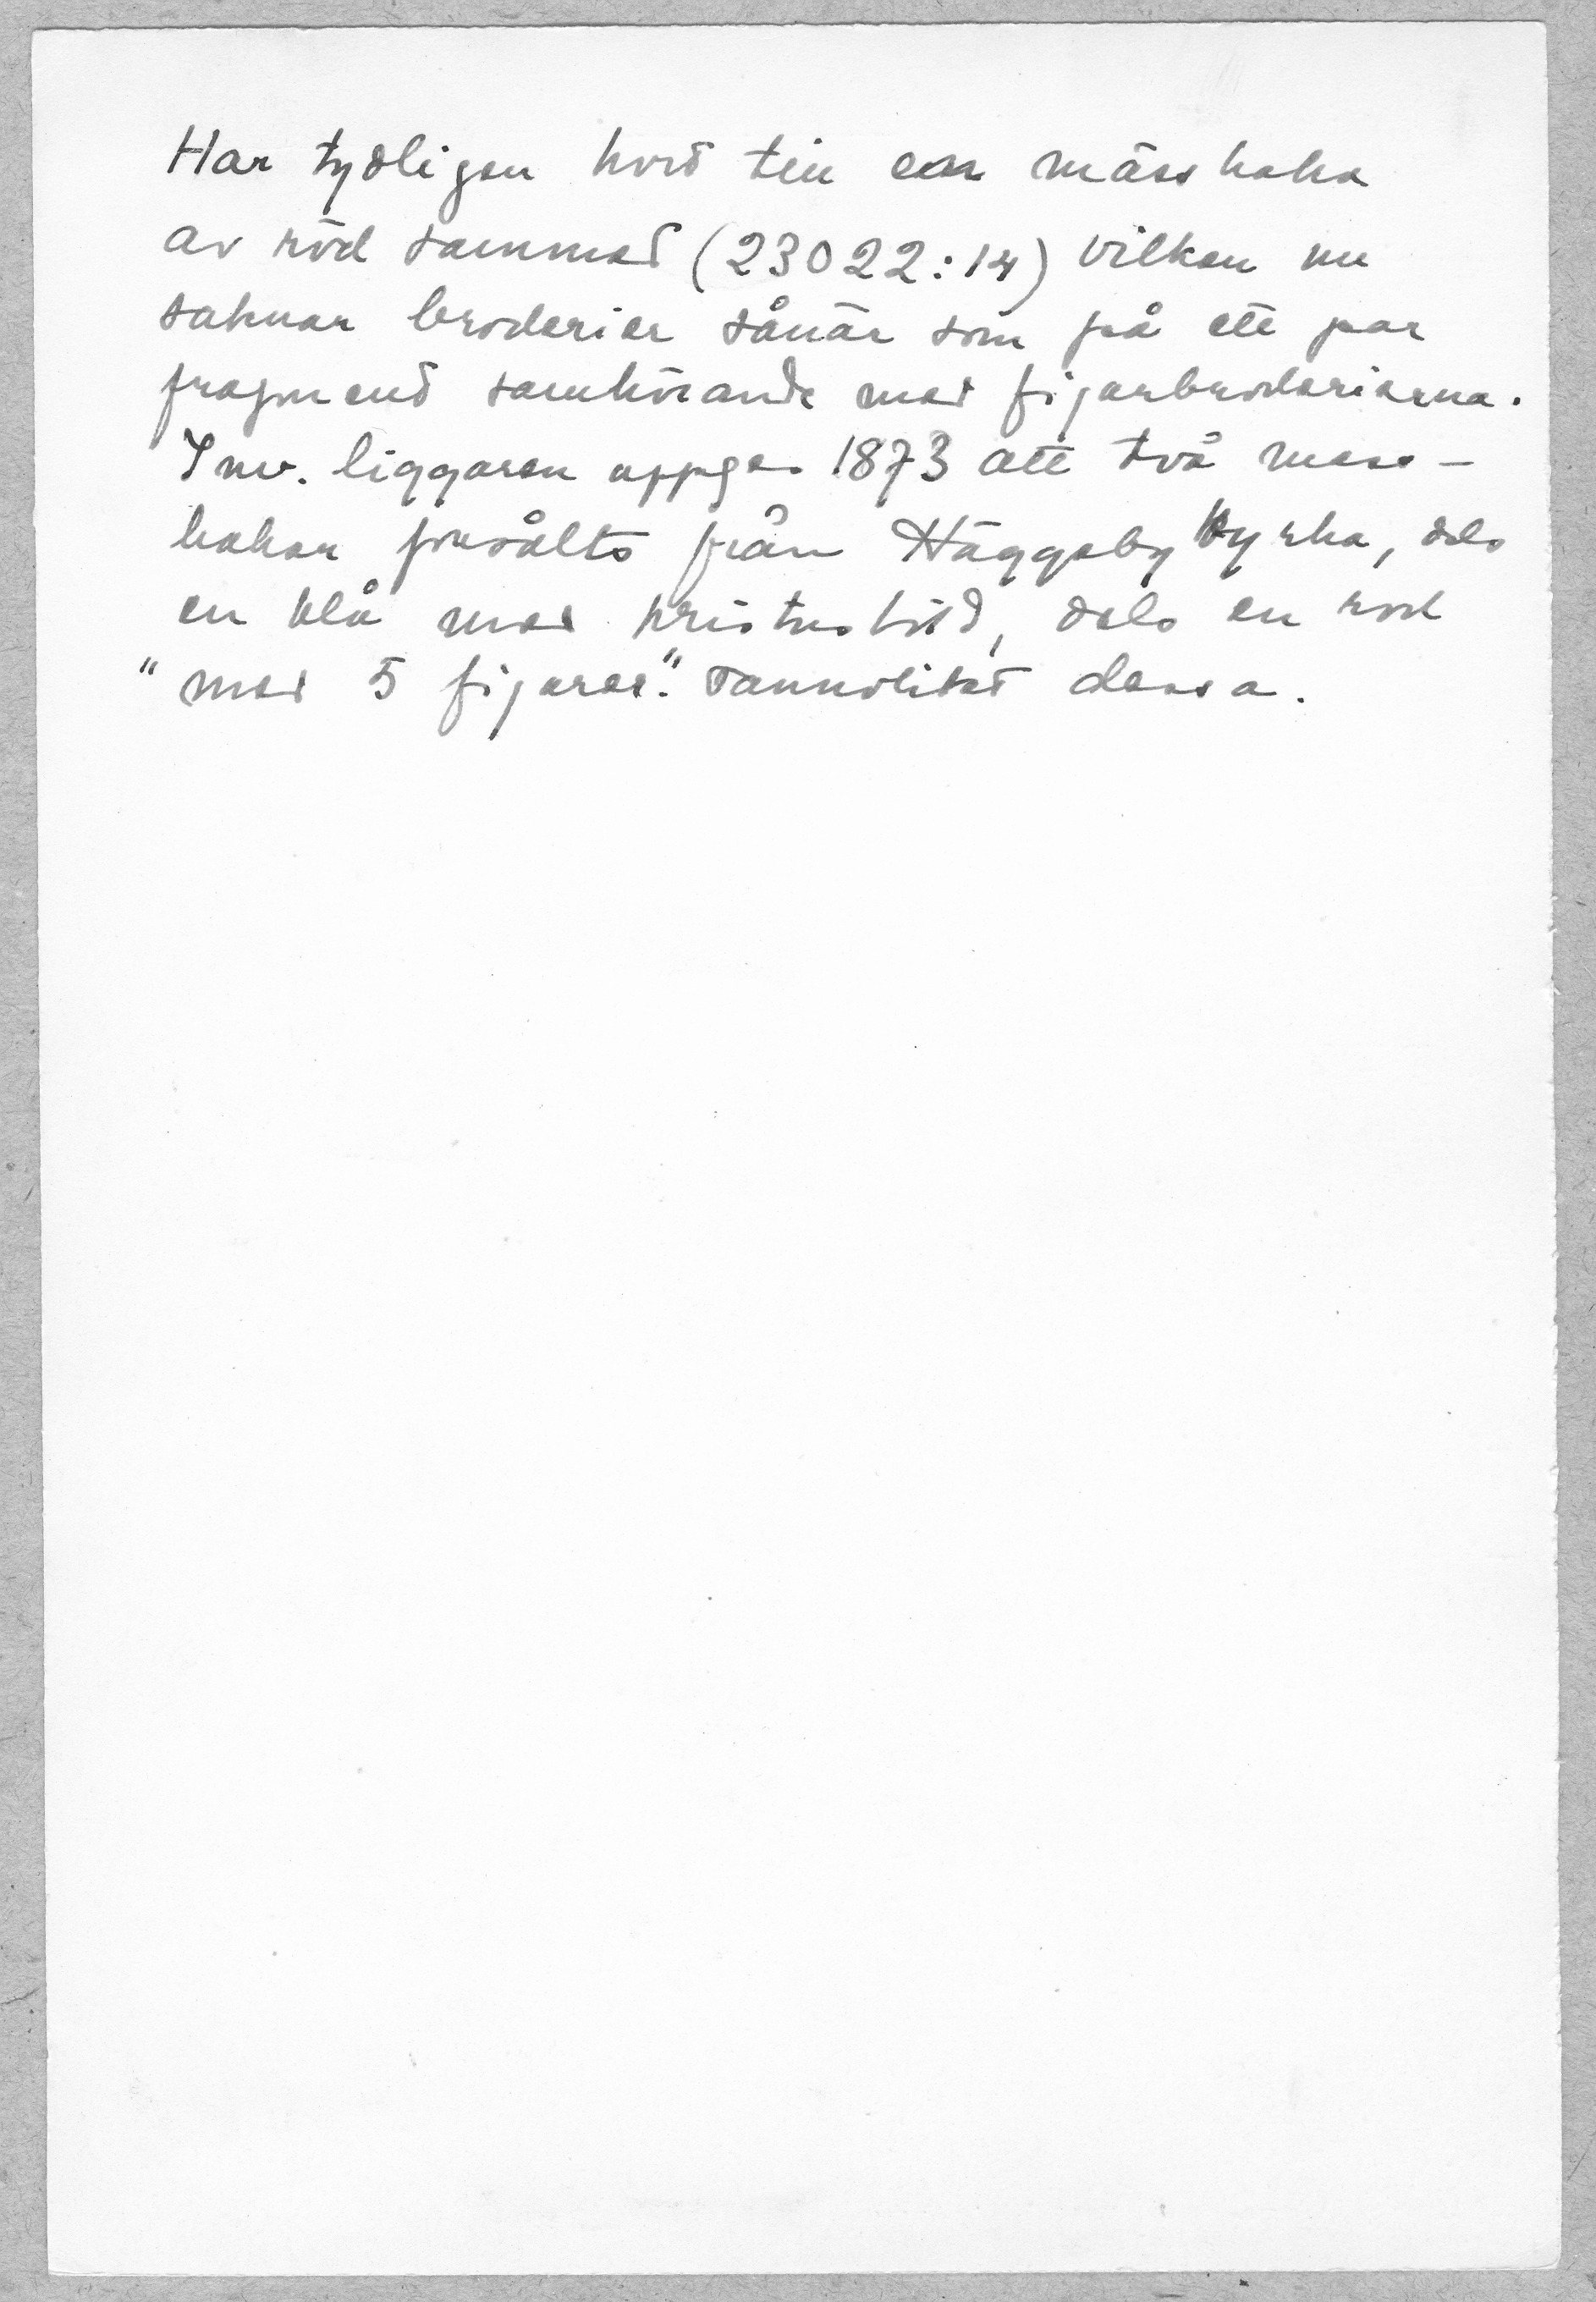 Har tydligen hört till en mässhake
av röd sammet (23022:14) vilken nu
saknar broderier sånär som på ett par
fragment samhörande med figurbroderierna.
I inv. liggaren uppges 1873 att två mäss-
hakar förvärvats från Häggeby kyrka, dels
en blå med Kristusbild, dels en röd
"med 5 figurer". Sannolikt dessa.